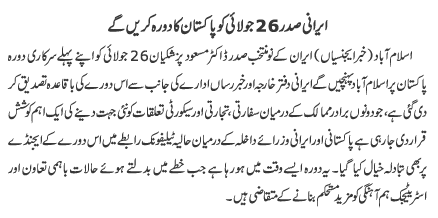 ایرانی صدر 26 جولائی کو پاکستان کا دورہ کریں گے
اسلام آباد (خبر ایجنسیاں) ایران کے نو منتخب صدر ڈاکٹر مسعود پزشکیان 26 جولائی کو اپنے پہلے سرکاری دورہ
پاکستان پر اسلام آباد پہنچیں گے ایرانی دفتر خارجہ اور خبر رساں ادارے کی جانب سے اس دورے کی باقاعدہ تصدیق کر
دی گئی ہے، جو دونوں برادر ممالک کے درمیان سفارتی، تجارتی اور سیکورٹی تعلقات کو نئی جہت دینے کی ایک اہم کوشش
قرار دی جارہی ہے پاکستانی اور ایرانی وزرائے داخلہ کے درمیان حالیہ ٹیلیفونک رابطے میں اس دورے کے ایجنڈے
پر بھی تبادلہ خیال کیا گیا۔ یہ دورہ ایسے وقت میں ہورہا ہے جب خطے میں بدلتے ہوئے حالات باہمی تعاون اور
اسٹریٹجک ہم آہنگی کو مزید مستحکم بنانے کے متقاضی ہیں۔